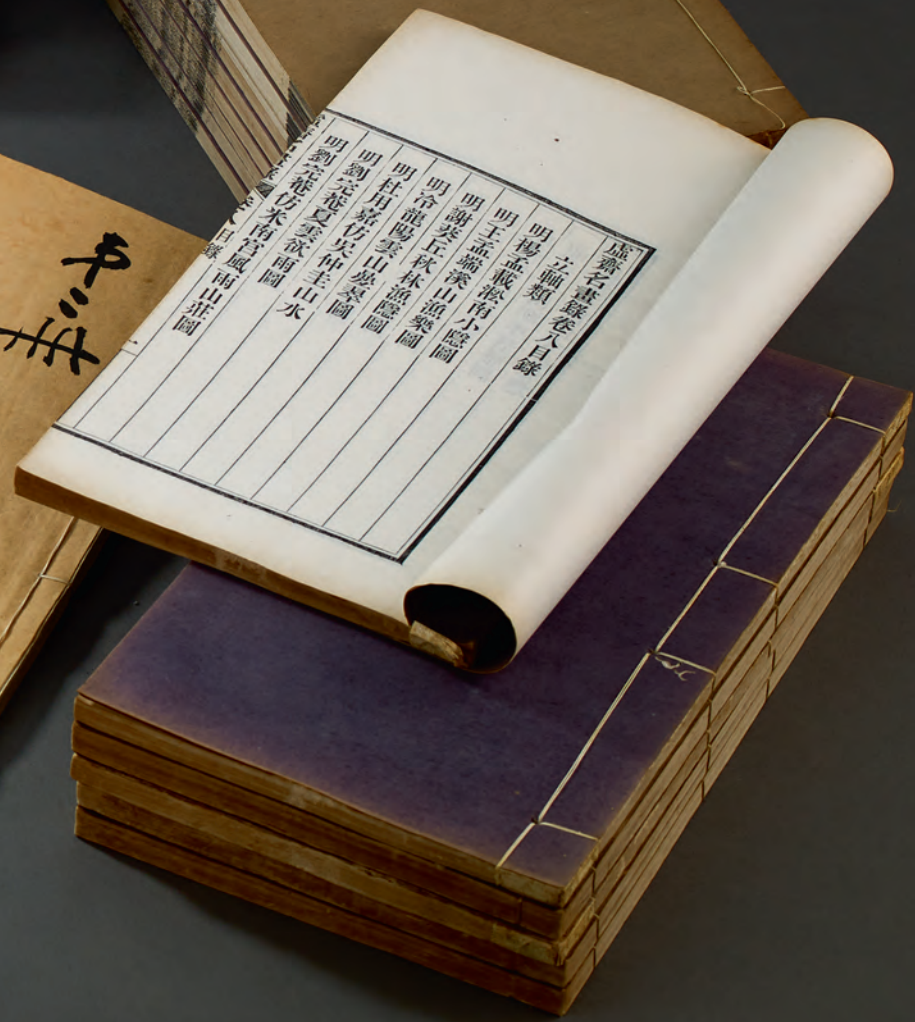 虛齋名畫錄卷八目錄
立軸類
明楊孟載淞南小隱圖
明王孟端溪山漁樂圖
明謝葵丘秋林漁隱圖
明冷龍陽雲山夢㝷圖
明杜用嘉仿吳仲圭山水
明劉完菴夏雲欲雨圖
明劉完菴仿米南宮風雨山莊圖
第二冊